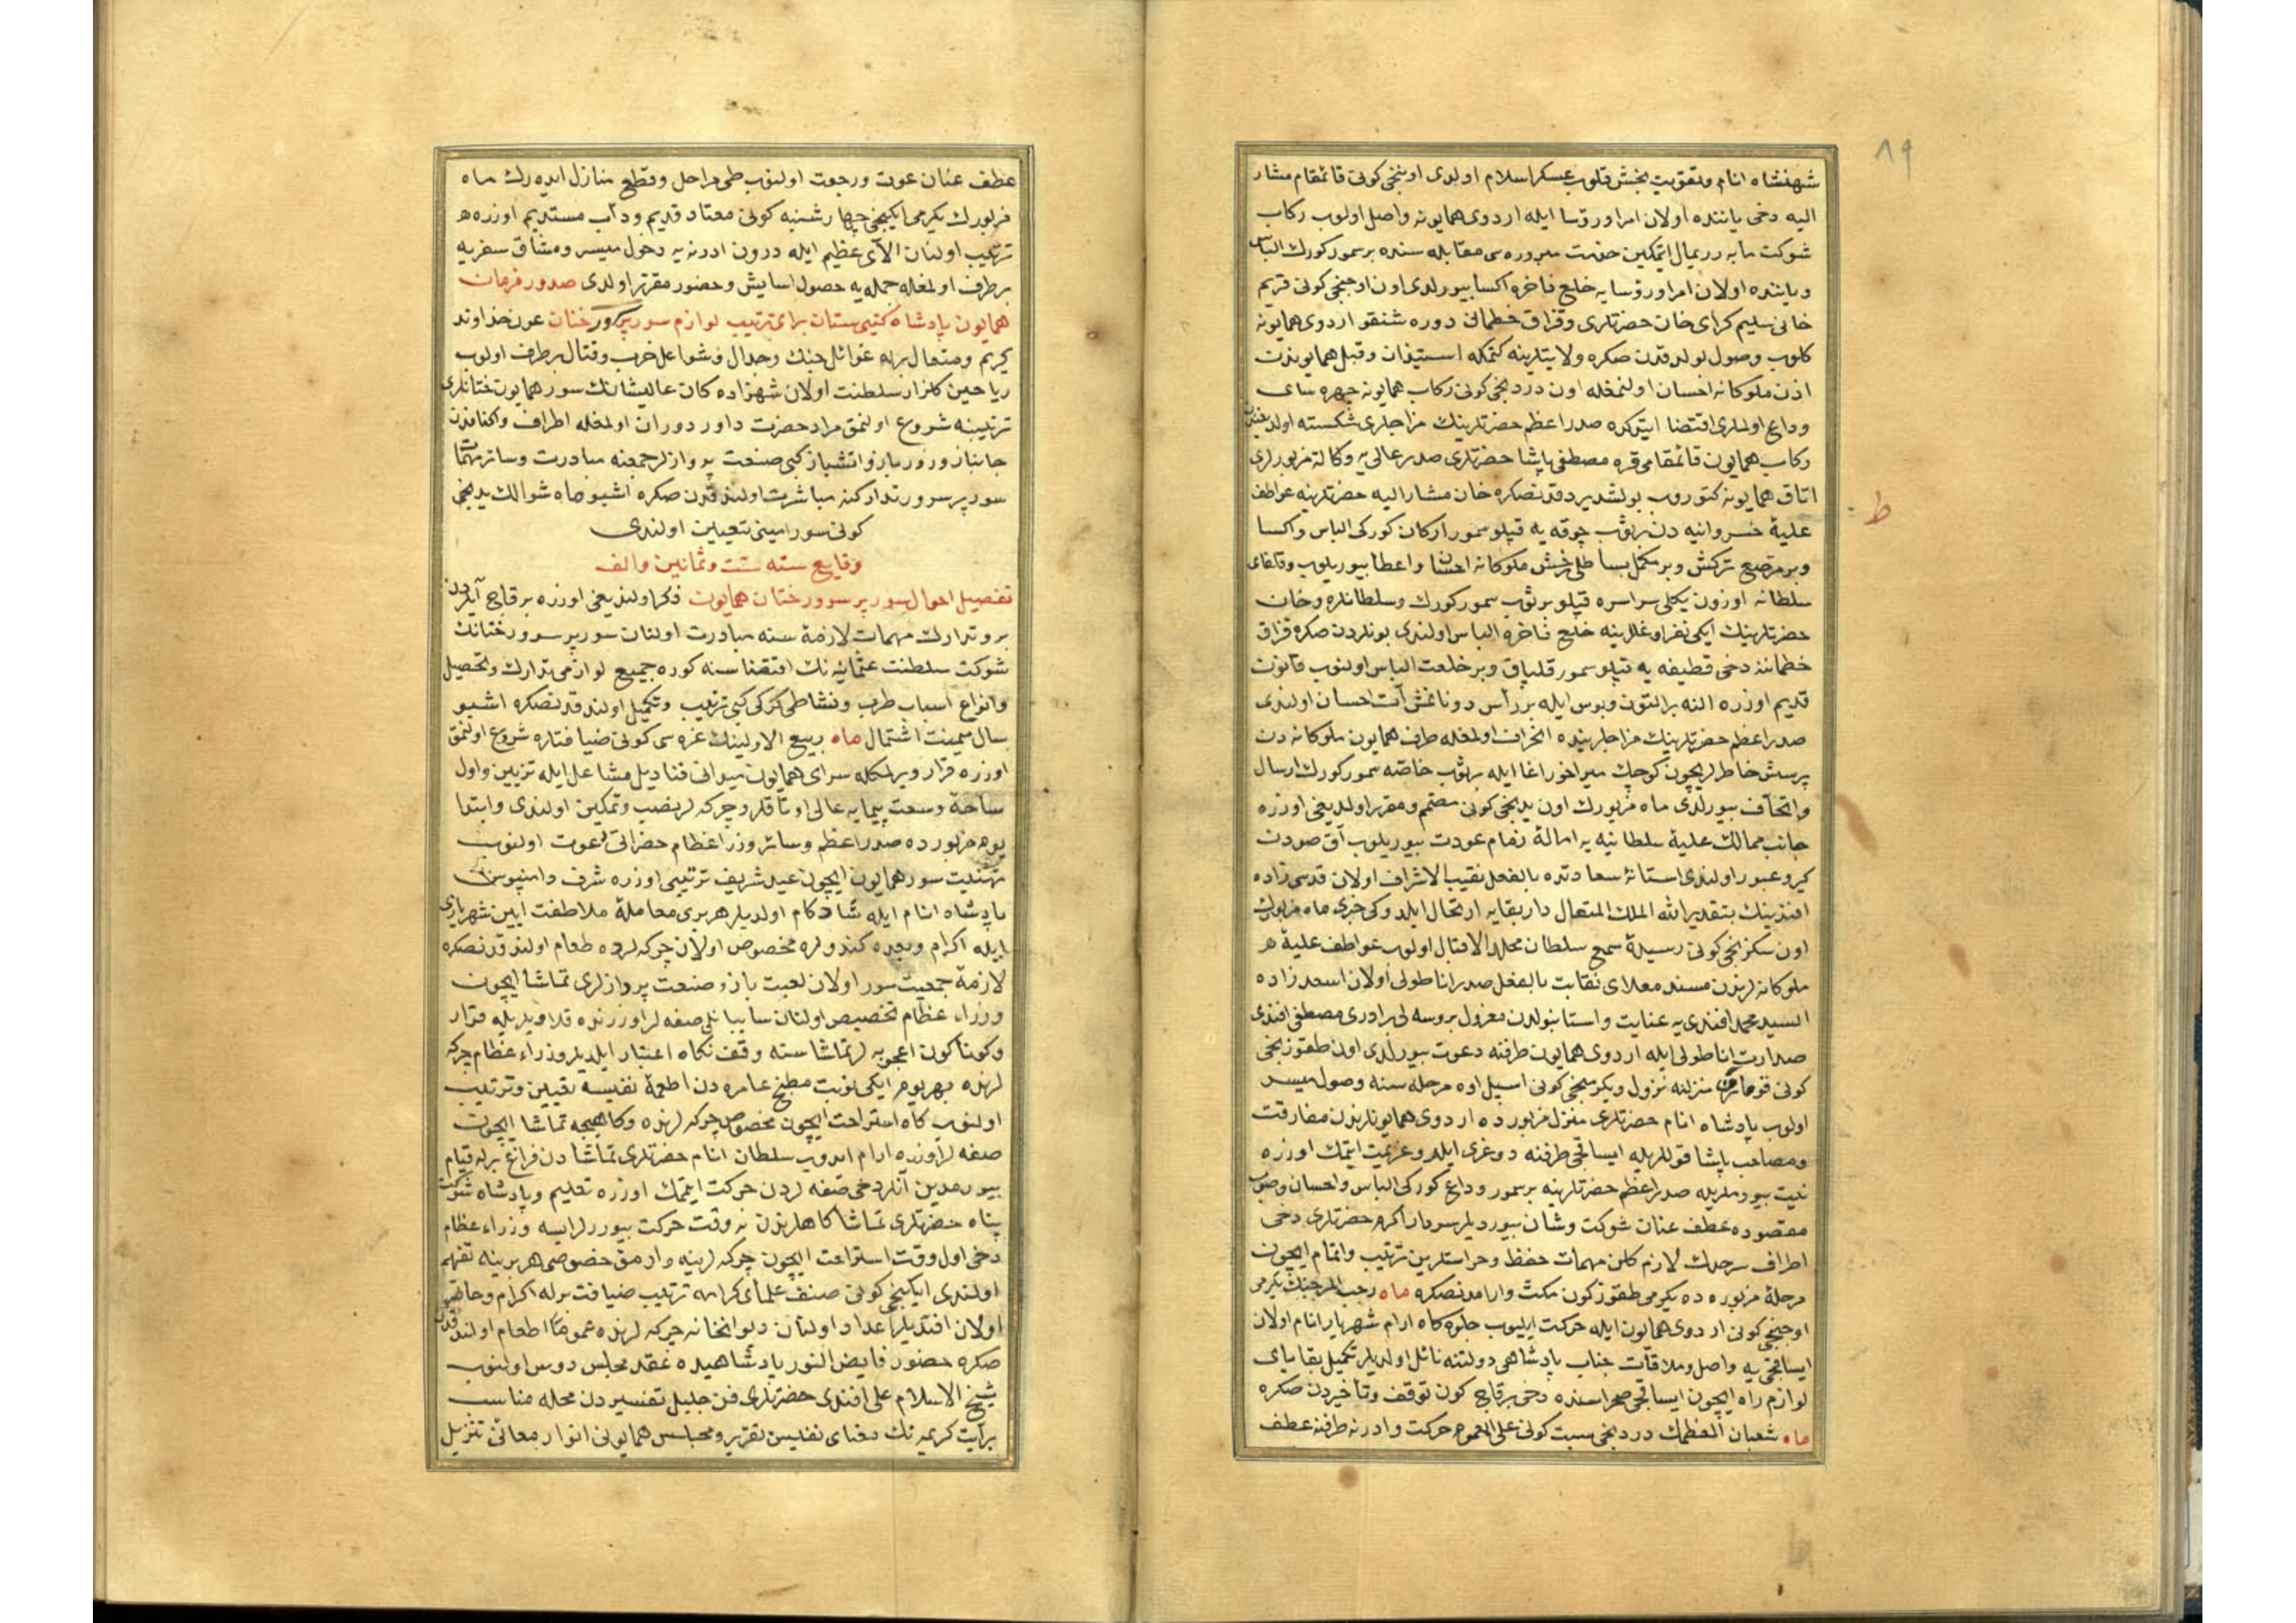 ٨٩
شهنشاه انام وتقويت بخش قلوب عسكر اسلام اولدى اوننجى كونى قائمقام مشار
اليه دخى ياننده اولان امرا ورؤسا ايله اردوى همايونه واصل اولوب ركاب
شوكت مآبه رويمال ايتمكين خدمت مبروره سى مقابله سنده بر سمور كورك الباس
وياننده اولان امرا ورؤسايه خلع فاخره اكسا بيورلدى اون اوچنجى كونى قريم
خانى سليم كراى خان حضرتلرى وقزاق خطمانى دوره شنقو اردوى همايونه
كلوب وصول بولدقدن صكره ولايتلرينه كتمكه استيذان وقبل همايوندن
اذن ملوكانه احسان اولنمغله اون دردنجى كونى ركاب همايونه چهره ساى
وداع اولملرى اقتضا ايتدكده صدر اعظم حضرتلرينك مزاجلرى شكسته اولديغندن
ركاب همايون قائمقامى قره مصطفى پاشا حضرتلرى صدر عالى يه وكالة مزبورلرى
اتاق همايونه كتوروب بولشديردقدنصكره خان مشار اليه حضرتلرينه عواطف
ط
عليۀ خسروانيه دن بر ثوب چوقه يه قپلو سمور اركان كوركى الباس واكسا
وبر مرصع تركش وبر مكمل بساطلى رخش ملوكانه احسان واعطا بيوريلوب وقالغاى
سلطانه اوزون يكلى سراسره قپلو بر ثوب سمور كورك وسلطانلره وخان
حضرتلرينك ايكى نفر اوغللرينه خلع فاخره الباس اولندى بونلردن صكره قزاق
خطماننه دخى قطيفه يه قپلو سمور قلپاق وبر خلعت الباس اولنوب قانون
قديم اوزره النه بر التون وبوس ايله بر رأس دونانمش آت احسان اولندى
صدر اعظم حضرتلرينك مزاجلرينده انحراف اولمغله طرف همايون ملوكانه دن
پرسش خاطرلريچون كوچك ميراخور اغا ايله بر ثوب خاصه سمور كورك ارسال
واتحاف بيورلدى ماه مزبورك اون يدنجى كونى مصمم ومقرر اولديغى اوزره
جانب ممالك عليۀ سلطانيه يه امالۀ زمام عودت بيوريلوب آق صودن
كيرو عبور اولندى استانۀ سعادتده بالفعل نقيب الاشراف اولان قدسى زاده
افندينك بتقدير الله الملك المتعال دار بقايه ارتحال ايلدوكى خبرى ماه مزبورك
اون سكزنجى كونى رسيدۀ سمع سلطان مخلد الاقبال اولوب عواطف عليۀ
ملوكانه لرندن مسند معلاى نقابت بالفعل صدر اناطولى اولان اسعد زاده
السيد محمد افندى يه عنايت واستانبولدن معزول بروسه لى برادرى مصطفى افندى
صدارت اناطولى ايله اردوى همايون طرفنه دعوت بيورلدى اون طقوزنجى
كونى منزلنه نزول ويكرمنجى كونى اسپل اوه مرحله سنه وصول ميسر
اولوب پادشاه انام حضرتلرى منزل مزبورده اردوى همايونلرندن مفارقت
ومصاحب پاشا قوللريله ايساقجى طرفنه دوغرى ايلرو عزيمت ايتمك اوزره
نيت بيورملريله صدر اعظم حضرتلرينه بر سمور وداع كوركى الباس واحسان وصوب
مقصوده عطف عنان شوكت وشان بيورديلر سردار اكرم حضرتلرى دخى
اطراف سرحدك لازم كلن مهمات حفظ وحراستلرين ترتيب واتمام ايچون
مرحلۀ مزبوره ده يكرمى طقوز كون مكث وارامدنصكره ماه رجب المرجبك يكرمى
اوچنجى كونى اردوى همايون ايله حركت ايليوب جلوه كاه ارام شهريار انام اولان
ايساقجى يه واصل وملاقات جناب پادشاهى دولتنه نائل اولديلر تكميل بقاياى
لوازم راه ايچون ايساقجى صحراسنده دخى بر قاچ كون توقف وتأخيردن صكره
ماه شعبان المعظمك دردنجى سبت كونى على العموم حركت وادرنه طرفنه عطف
عطف عنان عون ورجعت اولنوب طى مراحل وقطع منازل ايده رك ماه
مزبورك يكرمى ايكنجى چهارشنبه كونى معتاد قديم ودأب مستديم اوزره
ترتيب اولنان الآى عظيم ايله درون ادرنه يه دخول ميسر ومشاق سفريه
برطرف اولمغله جمله يه حصول اسايش وحضور مقرر اولدى صدور فرمان
همايون پادشاه كيتى ستان براى ترتيب لوازم سور پرسرور ختان عون خداوند
كريم ومتعال بزله غوائل جنك وجدال وشواغل حرب وقتال برطرف اولوب
رياحين كلزار سلطنت اولان شهزاده كان عاليشانك سور همايون ختانلرى
ترتيبنه شروع اولنمق مراد حضرت داور دوران اولمغله اطراف واكنافدن
جانباز وزورباز واتشباز كبى صنعت پردازلر جمعنه مبادرت وسائر مهمات
سور پرسرور تداركنه مباشرت اولندقدن صكره اشبو ماه شوالك يدنجى
كونى سور امينى تعيين اولندى
وقايع سنه ست وثمانين والف
تفصيل احوال سور پرسرور ختان همايون ذكر اولنديغى اوزره بر قاچ آيدن
برو تدارك مهمات لازمۀ سنه مبادرت اولنان سور پرسرور ختانك
شوكت سلطنت عثمانيه نك اقتضاسنه كوره جميع لوازمى تدارك وتحصيل
وانواع اسباب طرب ونشاطى كركى كبى ترتيب وتكميل اولندقدنصكره اشبو
سال ميمنت اشتمال ماه ربيع الاولينك غره سى كونى ضيافتلره شروع اولنمق
اوزره قرار ويرلمكله سراى همايون ميدانى قناديل مشاعل ايله تزيين واول
ساحۀ وسعت پيمايه عالى اوتاقلر وچركه لر نصب وتمكين اولندى وابتدا
يوم مزبورده صدر اعظم وسائر وزرا عظام حضراتى دعوت اولنوب
تهنيت سور همايون ايچون عيد شريف ترتيبى اوزره شرف دامنبوس
پادشاه انام ايله شادكام اولديلر هر برى معاملۀ ملاطفت ايين شهريارى
ايله اكرام وبعده كندولره مخصوص اولان چركه لرده طعام اولندقدنصكره
لازمۀ جمعيت سور اولان لعبت باز وصنعت پردازلرى تماشا ايچون
وزراء عظام تخصيص اولنان سايبانلى صفه لر اوزرنده قلاويزيله قرار
وكوناكون اعجوبه لر تماشاسنه وقف نكاه اعتبار ايلديلر وزراء عظام چركه
لرنده بهر يوم ايكى نوبت مطبخ عامره دن اطعمۀ نفيسه تعيين وترتيب
اولنوب كاه استراحت ايچون مخصوص چركه لرنده وكاهيجه تماشا ايچون
صفه لر اوزره ارام ايدوب سلطان انام حضرتلرى تماشادن فراغ بزله قيام
بيورمدين آنلر دخى صفه لردن حركت ايتمك اوزره تعليم وپادشاه شوكت
پناه حضرتلرى تماشاكاهلرندن نه وقت حركت بيوررلر ايسه وزراء عظام
دخى اول وقت استراحت ايچون چركه لرينه وارمق خصوصى هر برينه تفهيم
اولندى ايكنجى كونى صنف علماى كرامه ترتيب ضيافت برله اكرام
اولان افنديلر اعداد اولنان ديوانخانه چركه لرنده عموما اطعام اولندقدن
صكره حضور فايض النور پادشاهيده عقد مجلس دروس اولنوب
شيخ الاسلام على افندى حضرتلرى فن جليل تفسيردن محله مناسب
بر آيت كريمه نك معناى نفيسن تقرير ومجلس همايونى انوار معانئ تنزيل